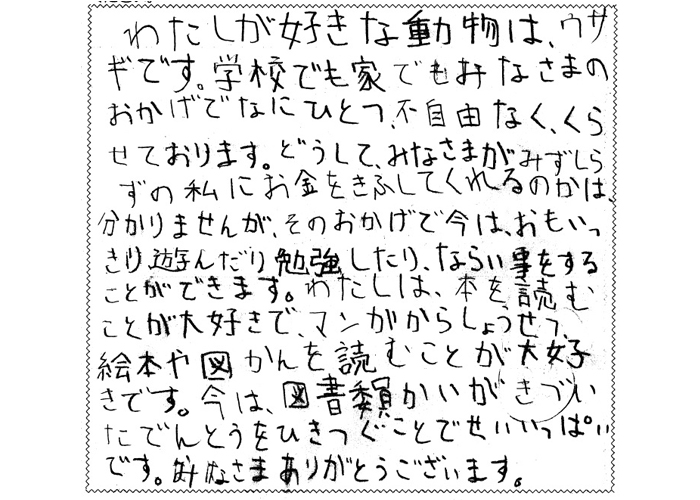 わたしが好きな動物は、ウサ
ギです。学校でも家でもみなさまの
おかげでなにひとつ、不自由なく、くら
せております。どうして、みなさまがみずしら
ずの私にお金をきふしてくれるのかは、
分かりませんが、そのおかげで今は、おもいっ
きり遊んだり勉強したり、ならい事をする
ことができます。わたしは、本を読む
ことが大好きで、マンガからしょうせつ、
絵本や図かんを読むことが大好
きです。今は、図書委員かいがきづい
たでんとうをひきつぐことでせいいっぱい
です。みなさまありがとうございます。